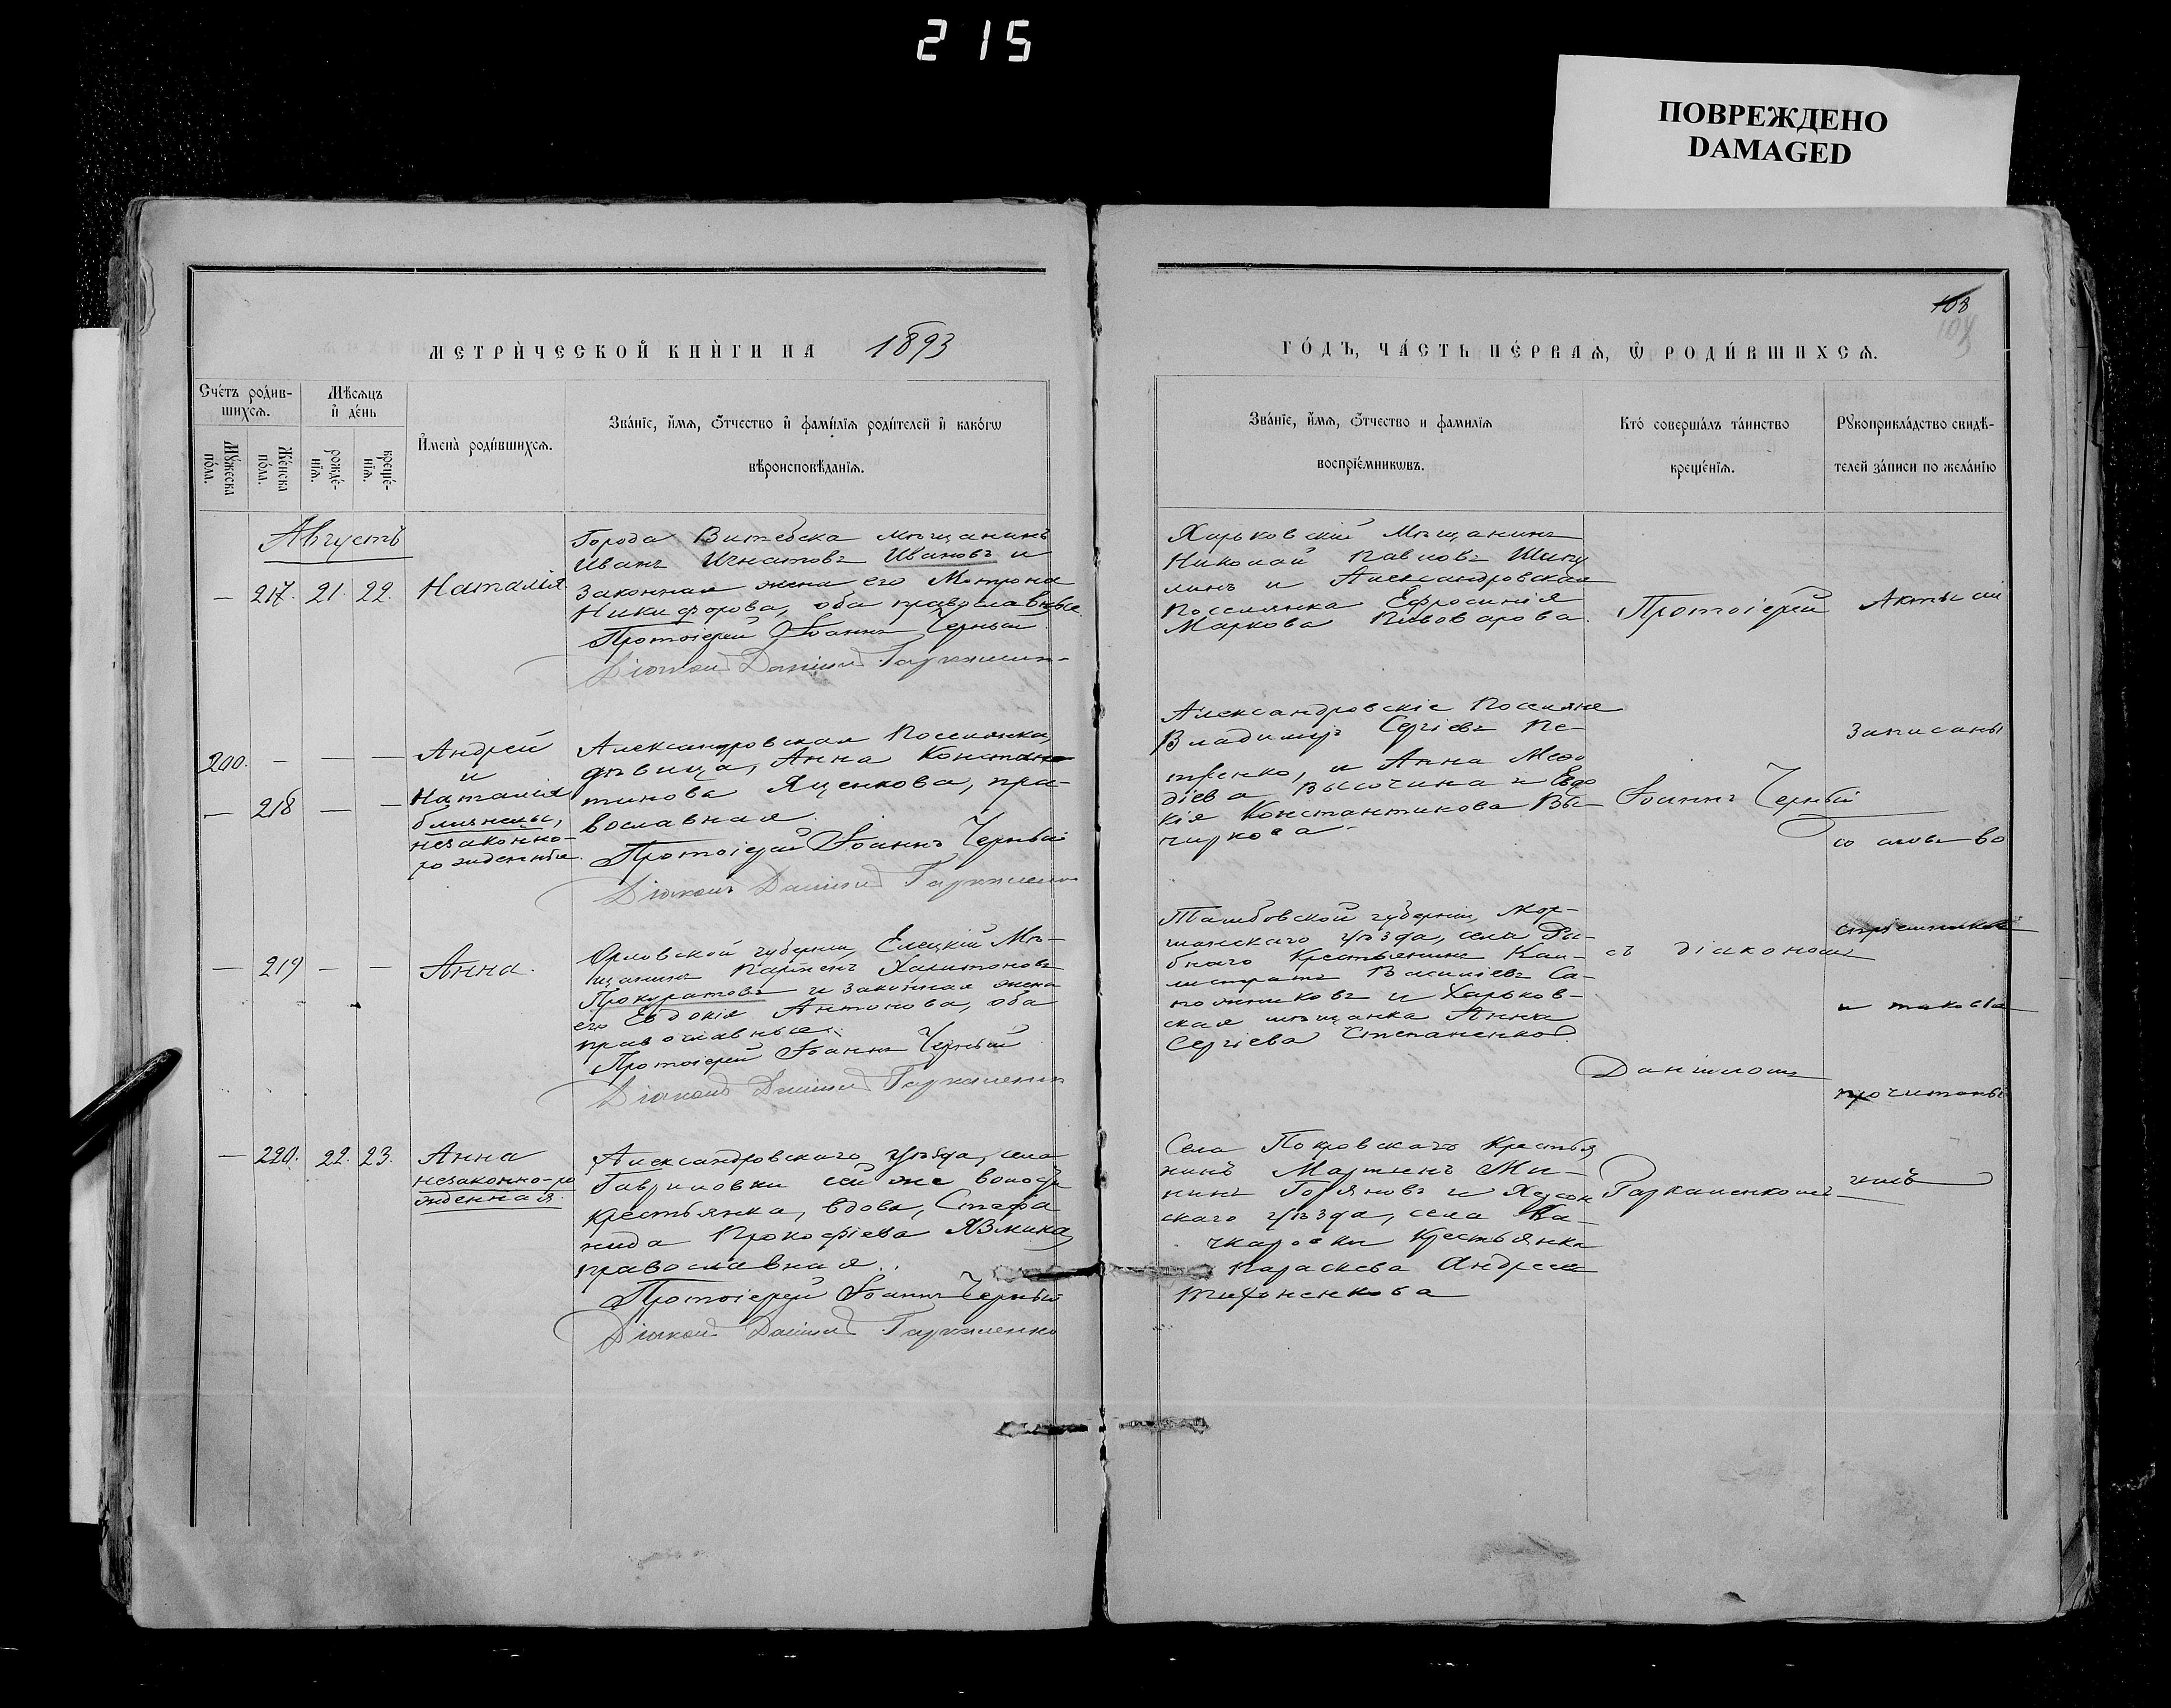 215
ПОВРЕЖДЕНО
DAMAGED
108
МЕТРИ́ЧЕСКОЙ КНИ́ГИ НА 1893
ГО́ДЪ, ЧА́СТЬ ПЕ́РВАѦ, Ѡ҆ РОДИ́ВШИХСѦ.
Сче́тъ роди́в-
шихсѧ.
Мѣ́сѧцъ
и҆ де́нь
Мꙋ́жеска
по́ла.
Же́нска
по́ла.
рожде́-
нїѧ.
креще́-
нїѧ.
И҆мена̀ роди́вшихсѧ.
Зва́нїе, и҆́мѧ, ѻ҆́тчество и҆ фами́лїѧ роди́телей и҆ како́гѡ
вѣроисповѣ́данїѧ.
Зва́нїе, и҆́мѧ, ѻ҆́тчество и фами́лїѧ
воспрїе́мникѡвъ.
Кто́ соверша́лъ та́инство
креще́нїѧ.
Рꙋкоприкла́дство свидѣ́-
телей за́писи по жела́нїю
Августъ
— 217. 21. 22. Наталія
Города Витебска мѣщанинъ
Иванъ Игнатовъ Ивановъ и
законная жена его Матрона
Никифорова, оба православные.
Протоіерей Іоаннъ Черный
Діаконъ Даніилъ Гаркаленко
Харьковскій Мѣщанинъ
Николай Павловъ
и Александровская
Поселянка Ефросинія
Маркова Пивоварова.
Протоіерей
Акты сіи
200. — — — Андрей
и
— 218 — — Наталія
близнецы,
незаконно-
рожденные.
Александровская Поселянка,
дѣвица, Анна Констан-
тинова Яценкова, пра-
вославная.
Протоіерей Іоаннъ Черный
Діаконъ Даніилъ Гаркаленко
Александровскіе Поселяне
Владиміръ Сергіевъ Пе-
тренко, и Анна Мефо
діева Высочина и Евдо
кія Константинова Вы-
чиркова.
Іоаннъ Черный
Записаны
со словъ во
— 219 — — Анна.
Орловской губерніи, Елецкій Мѣ-
щанинъ Парменъ Харитоновъ
Прокуратовъ и законная жена
его Евдокія Антонова, оба
православные.
Протоіерей Іоаннъ Черный
Діаконъ Даніилъ Гаркаленко
Тамбовской губерніи, Мор-
шанскаго уѣзда, села Ры-
бнаго Крестьянинъ Кал-
листратъ Василіевъ Са-
пожниковъ и Харьков-
ская мѣщанка Анна
Сергіева Степаненкова.
съ діакономъ
Даніиломъ
спріемниковъ
и таковые
прочитаны
— 220. 22. 23. Анна
незаконно-ро
жденная.
Александровскаго уѣзда, села
Гавриловки сей же волости
крестьянка, вдова, Стефа
нида Прокофіева Язмика,
православная.
Протоіерей Іоаннъ Черный
Діаконъ Даніилъ Гаркаленко
Села Покровскаго Крестья
нинъ Мартинъ Ми-
нинъ Горяновъ и Херсон
скаго уѣзда, села Ка-
чкаровки Крестьянка
Параскева Андреева
Тифоненкова
Гаркаленкомъ
имъ